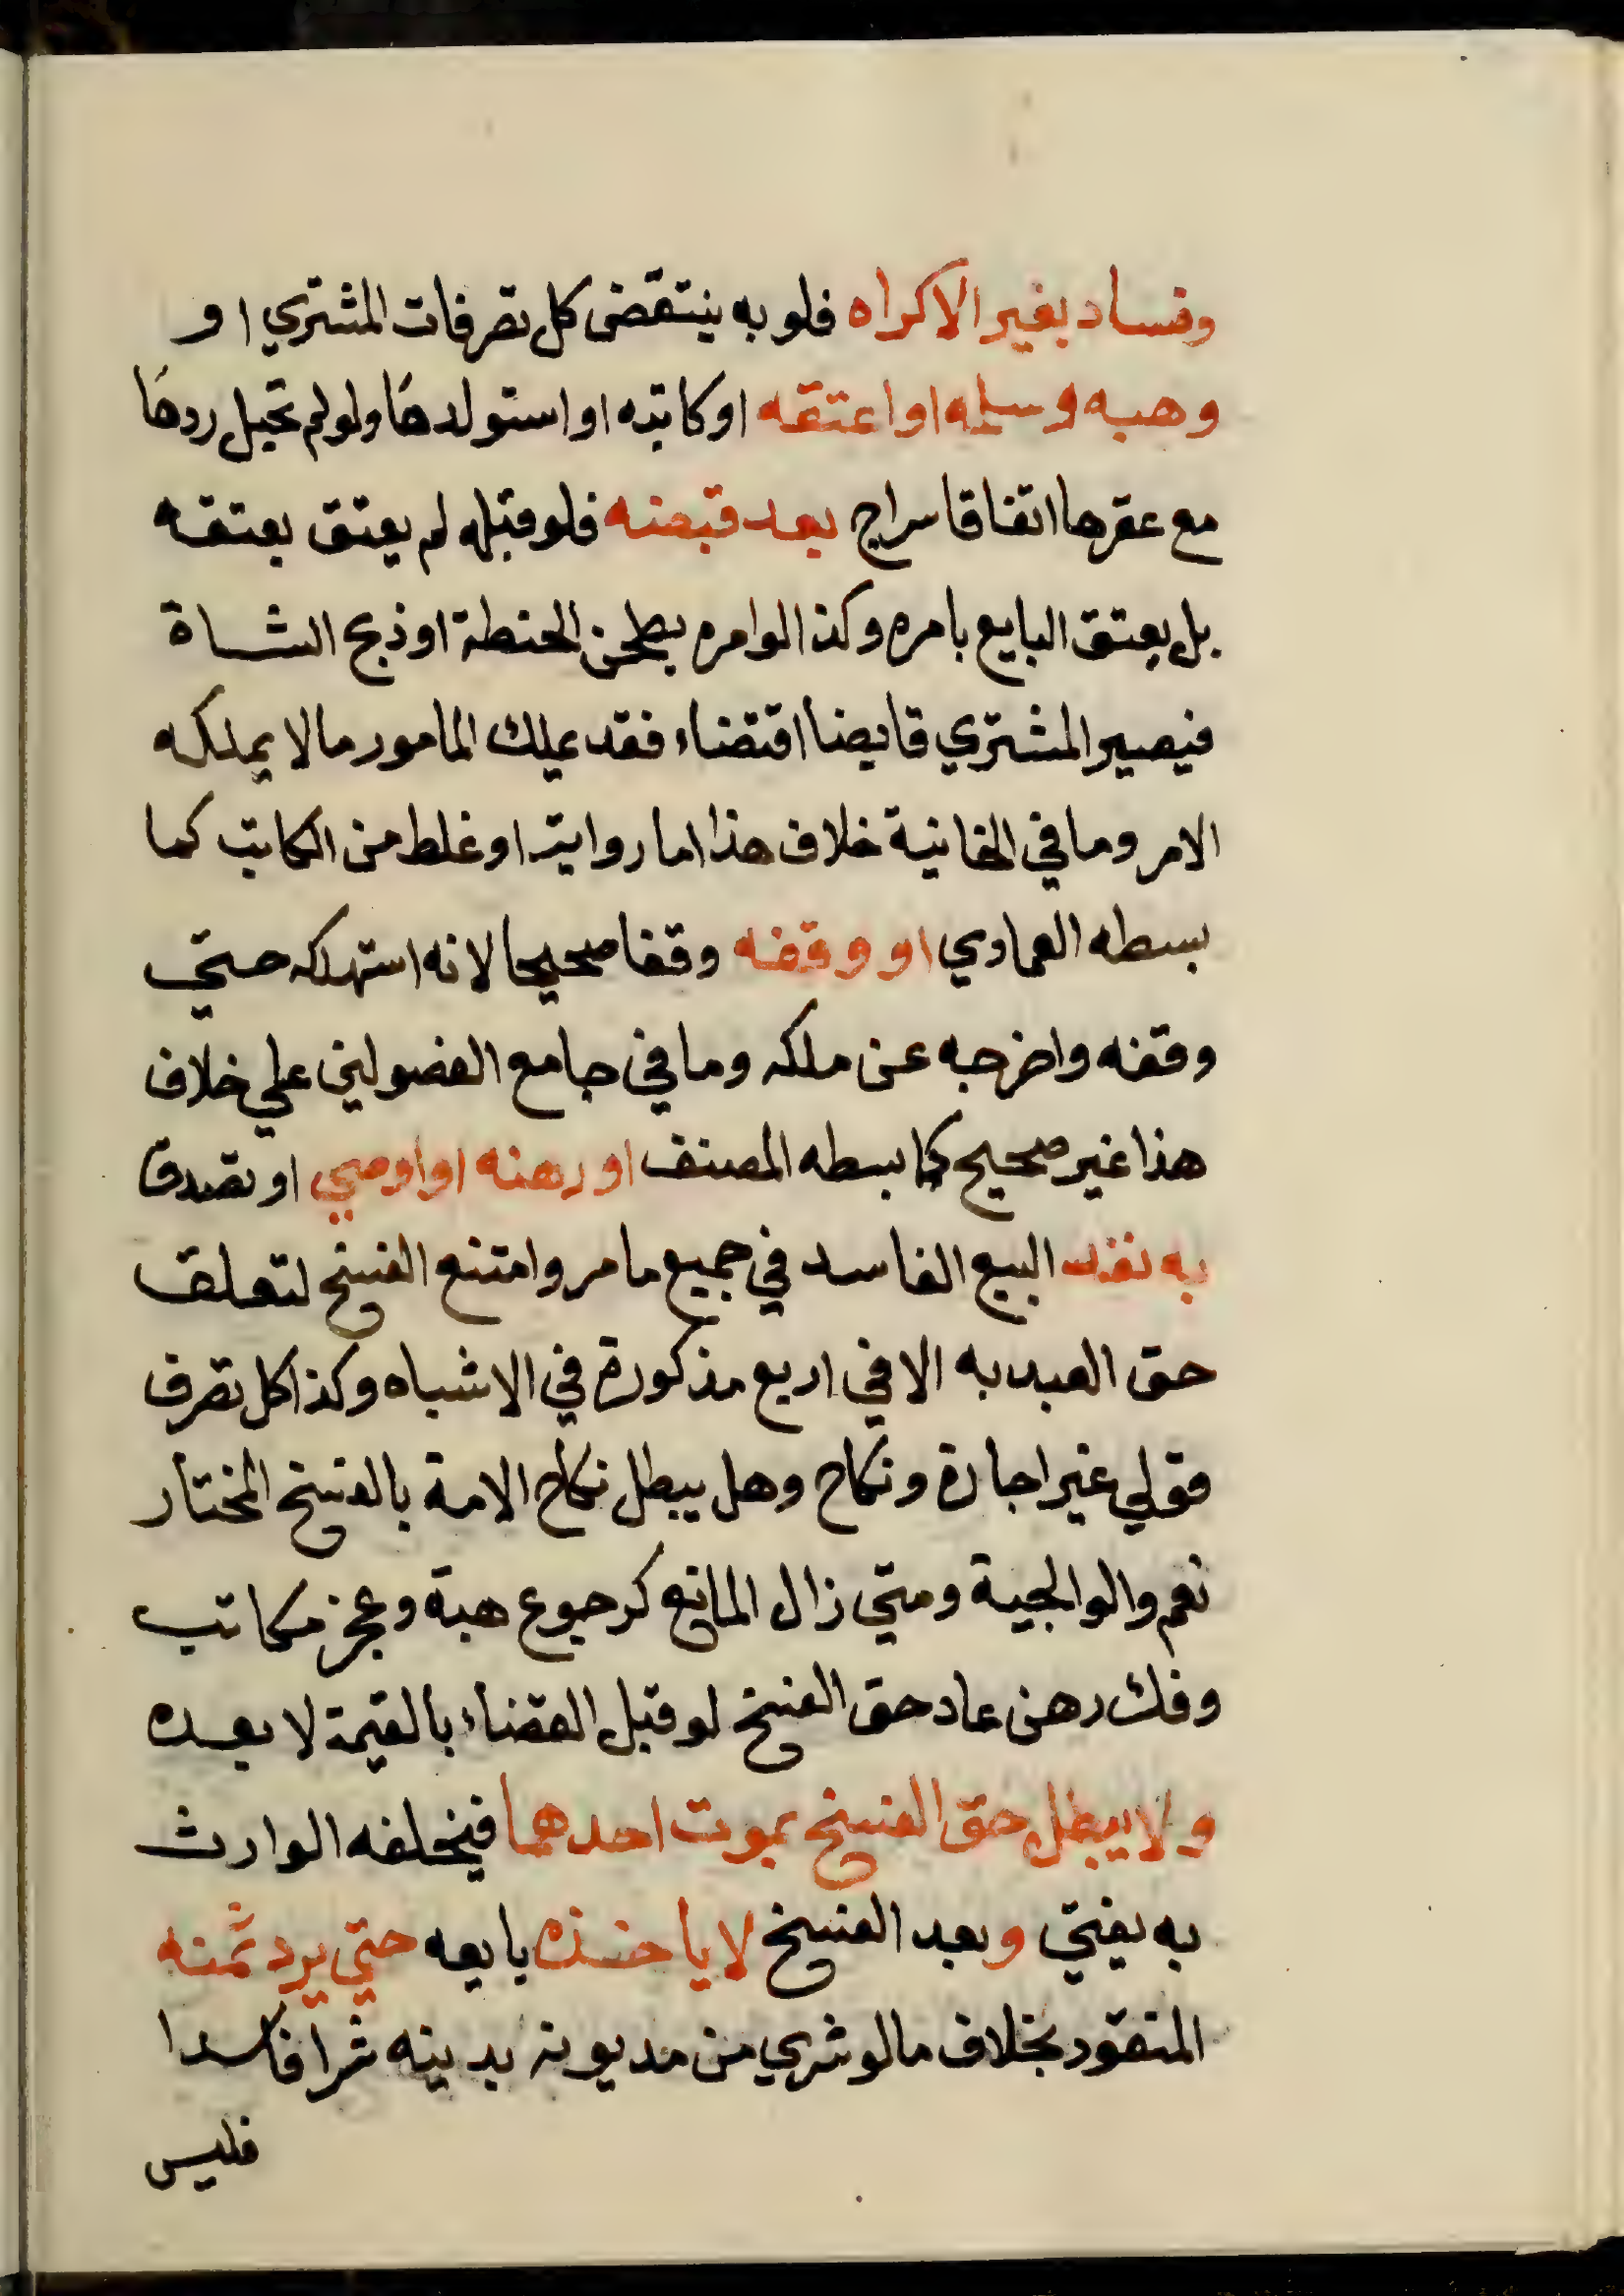 وفساد بغير الاكراه فلو به ينتقض كل تصرفات المشتري او
وهبه وسلمه او اعتقه او كاتبه او استولدها ولو لم تحبل ردها
مع عقرها اتفاقا سراج بعد قبضه فلو قبله لم يعتق بعتقه
بل يعتق البايع بامره وكذا لو امره بطحن الحنطة او ذبح الشاة
فيصير المشتري قابضا اقتضاء فقد يملك المامور ما لا يملكه
الامر وما في الخانية خلاف هذا اما رواية او غلط من الكاتب كما
بسطه العمادي او وقفه وقفا صحيحا لانه استهلكه حتي
وقفه واخرجه عن ملكه وما في جامع الفصولين علي خلاف
هذا غير صحيح كما بسطه المصنف او رهنه او اوصي او تصدق
به نفذ البيع الفاسد في جميع ما مر وامتنع الفسخ لتعلق
حق العبد به الا في اربع مذكورة في الاشباه وكذا كل تصرف
قولي غير اجارة ونكاح وهل يبطل نكاح الامة بالفسخ المختار
نعم والوالجية ومتي زال المانع كرجوع هبة وعجز مكاتب
وفك رهن عاد حق الفسخ لو قبل القضاء بالقيمة لا بعده
ولا يبطل حق الفسخ بموت احدهما فيخلفه الوارث
به يفتي وبعد الفسخ لا ياخذه بايعه حتي يرد ثمنه
المنقود بخلاف ما لو شري من مديونه بدينه شرا فاسدا
فليس